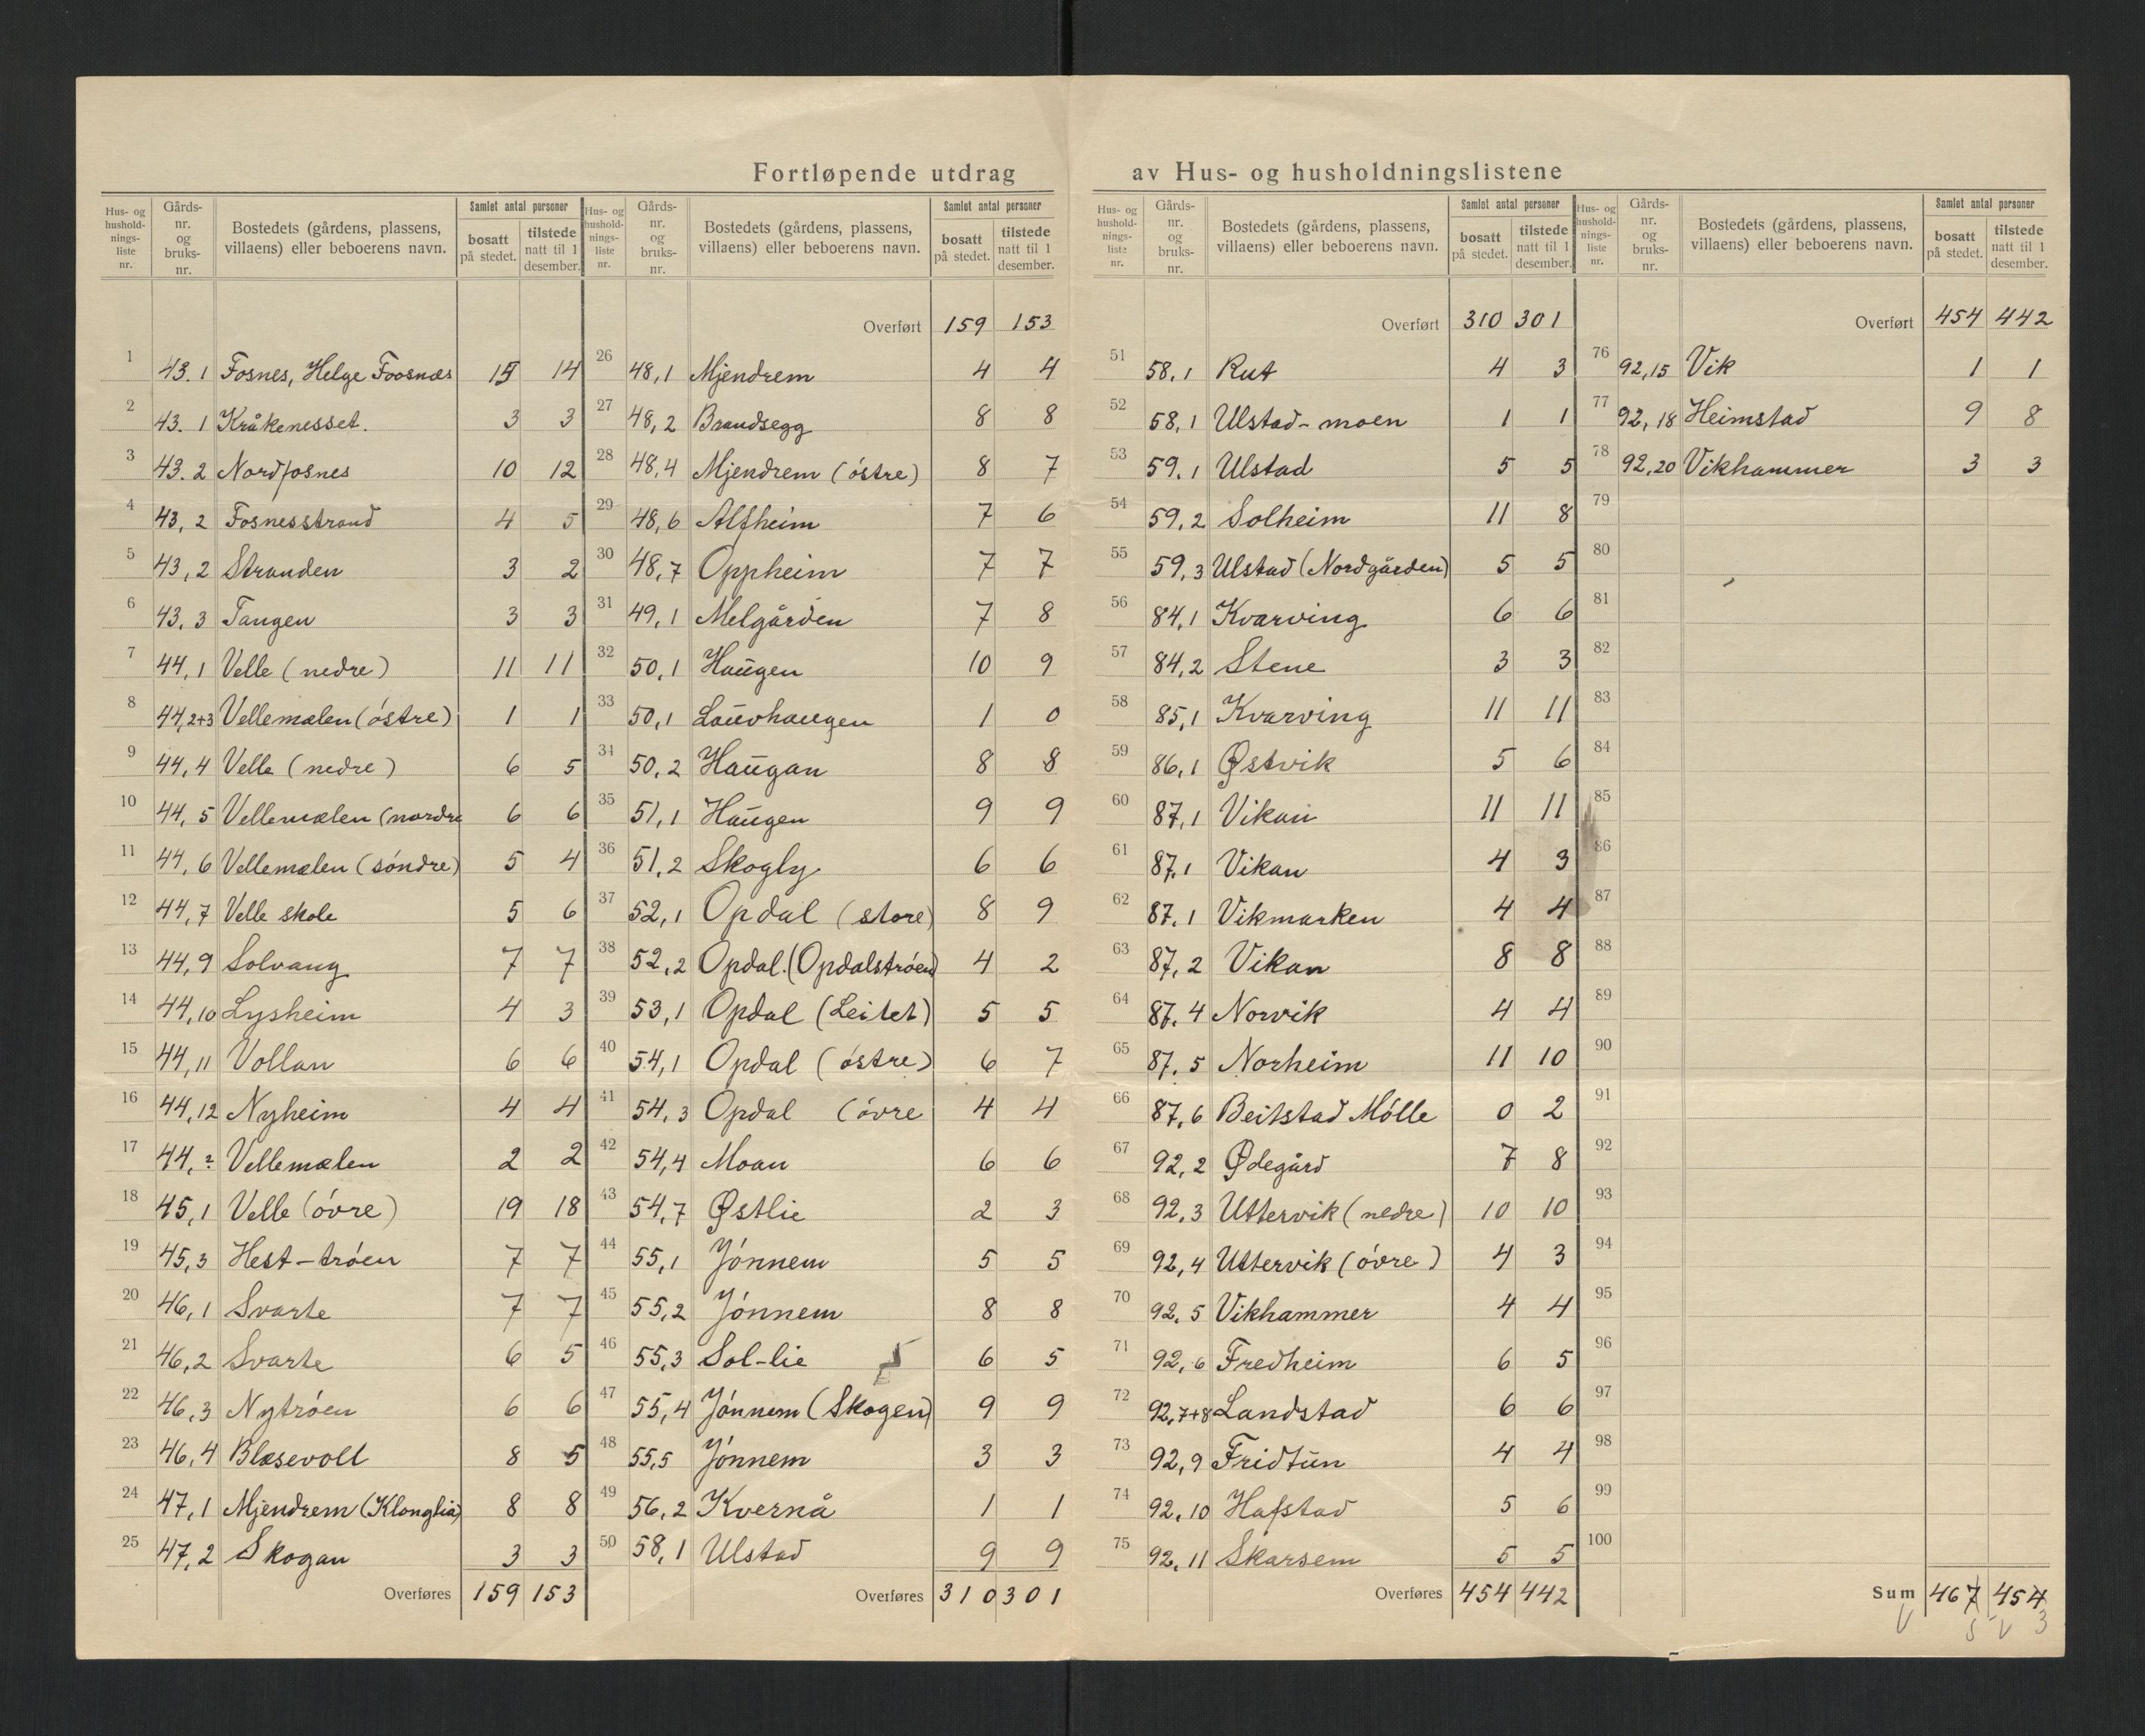 Fortløpende utdrag av Hus- og husholdningslistene
Hus- og hushold-nings-liste nr. Gårds-nr. og bruks-nr. Bostedets (gårdens, plassens, villaens) eller beboerens navn. Samlet antal personer bosatt på stedet. tilstede natt til 1 desember.
1 43.1 Fosnes, Helge Foosnæs 15 14
2 43.1 Kråkenesset. 3 3
3 43.2 Nordfosnes 10 12
4 43,2 Fosnesstrand 4 5
5 43,2 Stranden 3 2
6 43,3 Tangen 3 3
7 44,1 Velle (nedre) 11 11
8 44,2+3 Vellemælen (óstre) 1 1
9 44,4 Velle (nedre) 6 5
10 44,5 Vellemælen (nordre 6 6
11 44,6 Vellemælen (sóndre) 5 4
12 44,7 Velle skole 5 6
13 44,9 Solvang 7 7
14 44,10 Lysheim 4 3
15 44,11 Vollan 6 6
16 44,12 Nyheim 4 4
17 44,? Vellemælen 2 2
18 45,1 Velle (óvre) 19 18
19 45,3 Hest-tróen 7 7
20 46,1 Svarte 7 7
21 46,2 Svarte 6 5
22 46,3 Nytróen 6 6
23 46,4 Blæsevoll 8 5
24 47,1 Mjendrem (Klonglia) 8 8
25 47,2 Skogan 3 3
Overføres 159 153
Hus- og hushold-nings-liste nr. Gårds-nr. og bruks-nr. Bostedets (gårdens, plassens, villaens) eller beboerens navn. Samlet antal personer bosatt på stedet. tilstede natt til 1 desember.
Overført 159 153
26 48,1 Mjendrem 4 4
27 48,2 Brandsegg 8 8
28 48,4 Mjendrem (óstre) 8 7
29 48,6 Alfheim 7 6
30 48,7 Oppheim 7 7
31 49,1 Melgården 7 8
32 50,1 Haugen 10 9
33 50,1 Lauvhaugen 1 0
34 50,2 Haugan 8 8
35 51,1 Haugen 9 9
36 51,2 Skogly 6 6
37 52,1 Opdal (store) 8 9
38 52,2 Opdal. (Opdalstróen) 4 2
39 53,1 Opdal (Leitet) 5 5
40 54,1 Opdal (óstre) 6 7
41 54,3 Opdal (óvre 4 4
42 54,4 Moan 6 6
43 54,7 Østlie 2 3
44 55,1 Jónnem 5 5
45 55,2 Jónnem 8 8
46 55,3 Sol-lie 6 5
47 55,4 Jónnem (Skogen) 9 9
48 55,5 Jónnem 3 3
49 56,2 Kvernå 1 1
50 58,1 Ulstad 9 9
Overføres 310 301
Hus- og hushold-nings-liste nr. Gårds-nr. og bruks-nr. Bostedets (gårdens, plassens, villaens) eller beboerens navn. Samlet antal personer bosatt på stedet. tilstede natt til 1 desember.
Overført 310 301
51 58,1 Rut 4 3
52 58,1 Ulstad-moen 1 1
53 59,1 Ulstad 5 5
54 59,2 Solheim 11 8
55 59,3 Ulstad (Nordgården) 5 5
56 84,1 Kvarving 6 6
57 84,2 Stene 3 3
58 85,1 Kvarving 11 11
59 86,1 Østvik 5 6
60 87,1 Vikan 11 11
61 87,1 Vikan 4 3
62 87,1 Vikmarken 4 4
63 87,2 Vikan 8 8
64 87,4 Norvik 4 4
65 87,5 Norheim 11 10
66 87,6 Beitstad Mólle 0 2
67 92,2 Ødegård 7 8
68 92,3 Uttervik (nedre) 10 10
69 92,4 Uttervik (óvre) 4 3
70 92,5 Vikhammer 4 4
71 92,6 Fredheim 6 5
72 92,7+8 Landstad 6 6
73 92,9 Fridtun 4 4
74 92,10 Hafstad 5 6
75 92,11 Skarsem 5 5
Overføres 454 442
Hus- og hushold-nings-liste nr. Gårds-nr. og bruks-nr. Bostedets (gårdens, plassens, villaens) eller beboerens navn. Samlet antal personer bosatt på stedet. tilstede natt til 1 desember.
Overført 454 442
76 92,15 Vik 1 1
77 92,18 Heimstad 9 8
78 92,20 Vikhammer 3 3
79
80
81
82
83
84
85
86
87
88
89
90
91
92
93
94
95
96
97
98
99
100
Sum 467 454
5 3